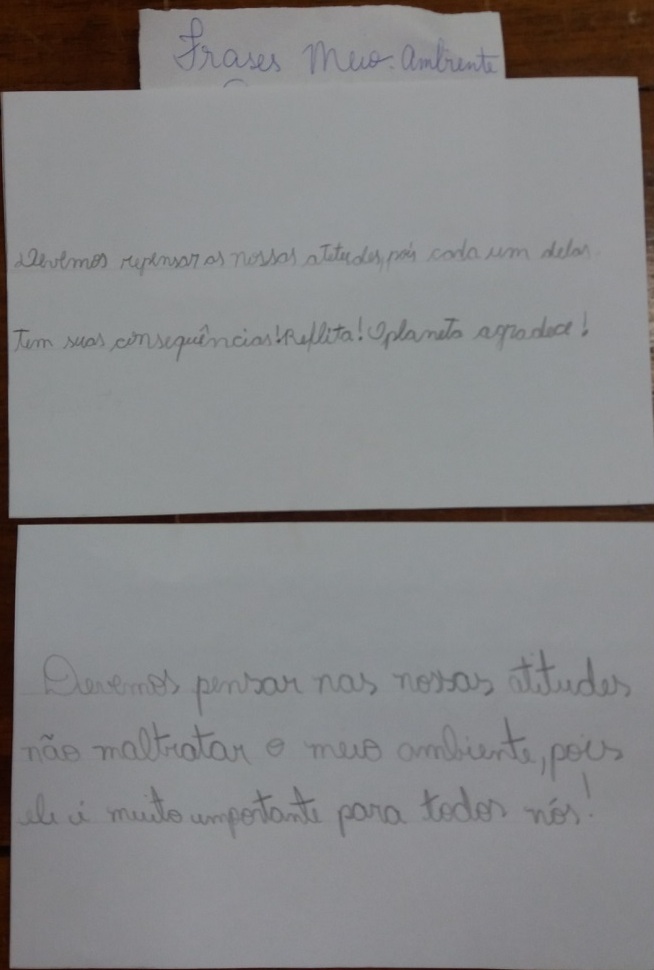 Frases Meio Ambiente
Devemos repensar as nossas atitudes, pois cada um delas
Tem suas consequências! Reflita! O planeta agradece!
Devemos pensar nas nossas atitudes
não maltratar o meio ambiente, pois
ele é muito importante para todos nós!